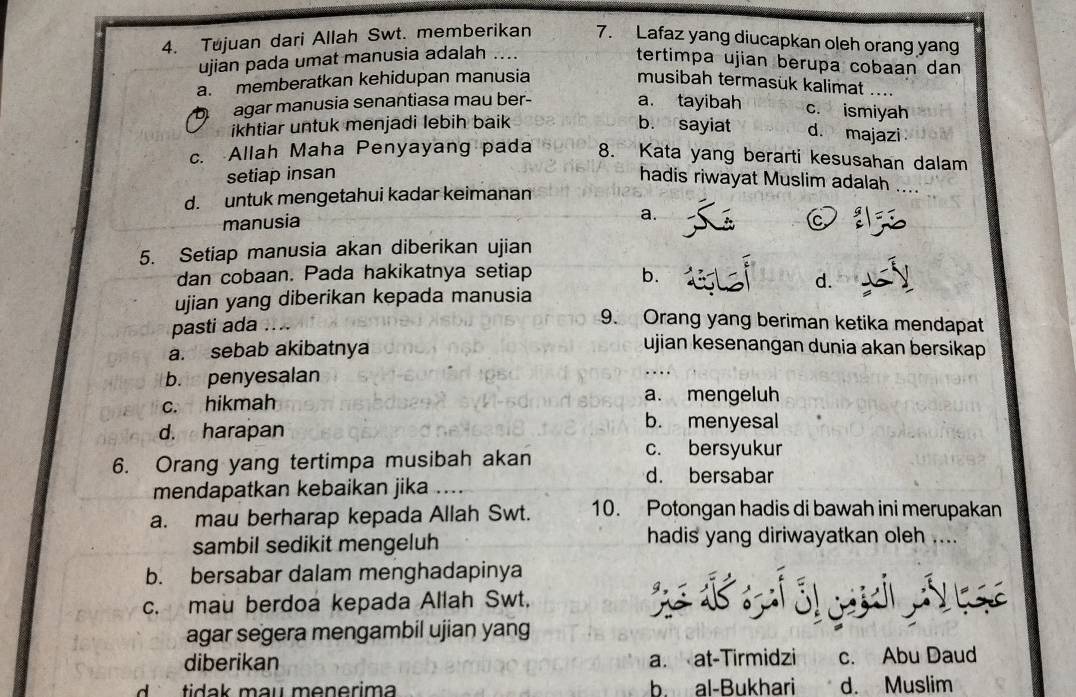 4. Tujuan dari Allah Swt. memberikan
ujian pada umat manusia adalah ....
a. memberatkan kehidupan manusia
agar manusia senantiasa mau ber-
ikhtiar untuk menjadi lebih baik
c. Allah Maha Penyayang pada
setiap insan
d. untuk mengetahui kadar keimanan
manusia
5. Setiap manusia akan diberikan ujian
dan cobaan. Pada hakikatnya setiap
ujian yang diberikan kepada manusia
pasti ada ....
a. sebab akibatnya
b. penyesalan
c. hikmah
d. harapan
6. Orang yang tertimpa musibah akan
mendapatkan kebaikan jika ....
a. mau berharap kepada Allah Swt.
sambil sedikit mengeluh
b. bersabar dalam menghadapinya
c. mau berdoa kepada Allah Swt.
agar segera mengambil ujian yang
diberikan
d. tidak mau menerima
7. Lafaz yang diucapkan oleh orang yang
tertimpa ujian berupa cobaan dan
musibah termasuk kalimat ....
a. tayibah c. ismiyah
b. sayiat d. majazi
8. Kata yang berarti kesusahan dalam
hadis riwayat Muslim adalah ....
a. شَكَرَ c. ضَرَّاءُ
b. أَصَابَتْهُ d. لِأَحَدٍ
9. Orang yang beriman ketika mendapat
ujian kesenangan dunia akan bersikap
....
a. mengeluh
b. menyesal
c. bersyukur
d. bersabar
10. Potongan hadis di bawah ini merupakan
hadis yang diriwayatkan oleh ....
عَجَبًا لِأَمْرِ الْمُؤْمِنِ إِنَّ أَمْرَهُ كُلَّهُ خَيْرٌ
a. at-Tirmidzi c. Abu Daud
b. al-Bukhari d. Muslim